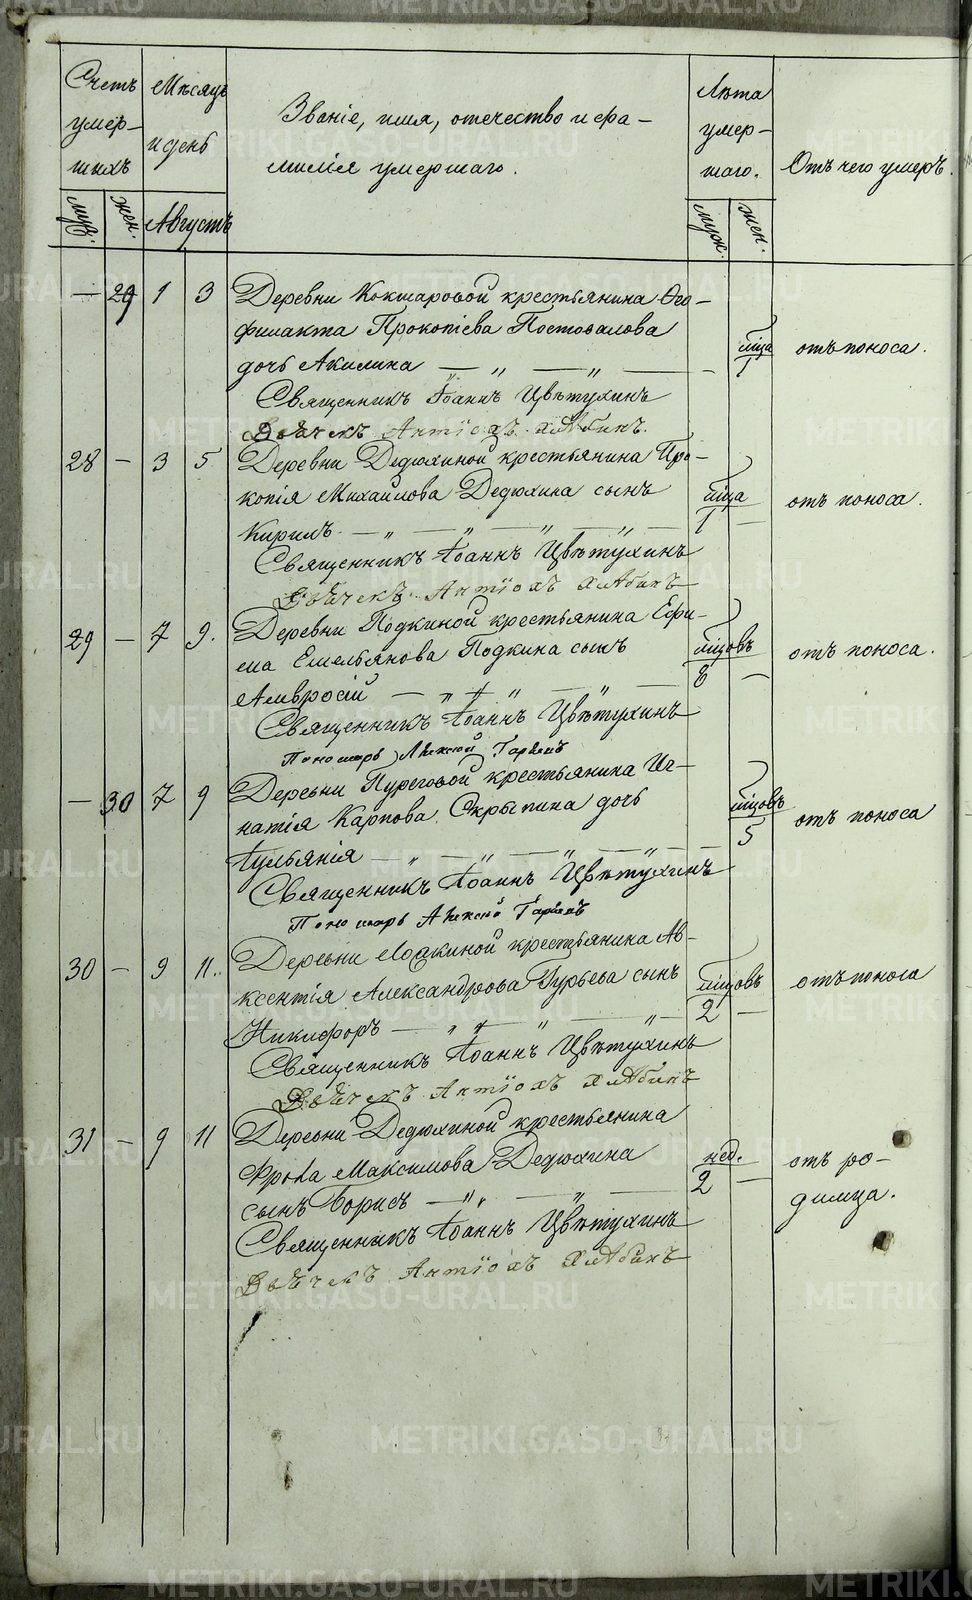 METRIKI.GASO-URAL.RU
Счетъ умер-шихъ
Мѣсяцъ и день
Званіе, имя, отечество и фа-
милія умершаго.
Лѣта умер-шаго.
Отъ чего умеръ.
муж. жен. Августъ муж. жен.
— 29 1 3 Деревни Кокшаровой крестьянина Ѳео-
филакта Прокопіева Постовалова
дочь Акилина — мѣсяца 1 отъ поноса.
Священникъ Іоаннъ Цвѣтухинъ
Дьячекъ Антіохъ Хлѣбинъ.
28 — 3 5 Деревни Дедюхиной крестьянина Про-
копія Михайлова Дедюхина сынъ
Кирилъ мѣсяца 1 — отъ поноса.
Священникъ Іоаннъ Цвѣтухинъ
Дьячекъ Антіохъ Хлѣбинъ
29 — 7 9. Деревни Подкиной крестьянина Ефи-
ма Емельянова Подкина сынъ
Амвросій мѣсяцовъ 8 — отъ поноса.
Священникъ Іоаннъ Цвѣтухинъ
Пономарь Алексѣй
— 30 7 9 Деревни крестьянина Иг-
натія Карпова Скрыпина дочь
Іульянія мѣсяцовъ 5 отъ поноса
Священникъ Іоаннъ Цвѣтухинъ
Пономарь Алексѣй
30 — 9 11. Деревни крестьянина Ав-
ксентія Александрова Гурьева сынъ
Никифоръ мѣсяцовъ 2 — отъ поноса
Священникъ Іоаннъ Цвѣтухинъ
Дьячекъ Антіохъ Хлѣбинъ
31 — 9 11 Деревни Дедюхиной крестьянина
Фрола Максимова Дедюхина
сынъ Борисъ нед. 2 — отъ ро-
димца.
Священникъ Іоаннъ Цвѣтухинъ
Дьячекъ Антіохъ Хлѣбинъ